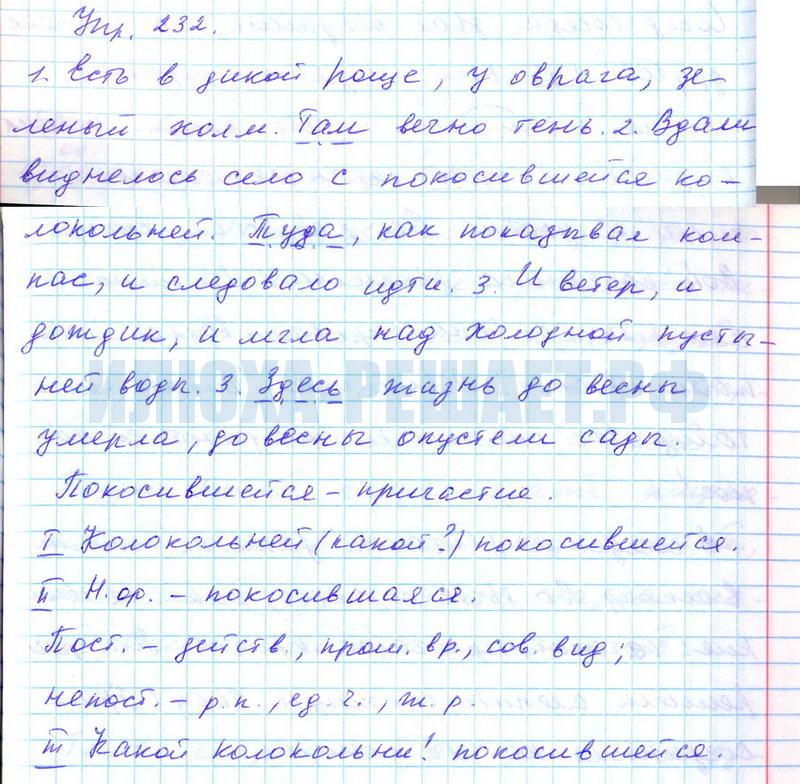 Упр. 232.
1. Есть в дикой роще, у оврага, зе-
леный холм. Там вечно тень. 2. Вдали
виднелось село с покосившейся ко-
локольней. Туда, как показывал ком-
пас, и следовало идти. 3. И ветер, и
дождик, и мгла над холодной пусты-
ней воды. 3. Здесь жизнь до весны
ИЛЮХА-РЕШАЕТ.РФ
умерла, до весны опустели сады.
Покосившейся – причастие.
I Колокольней (какой?) покосившейся.
II Н.ф. – покосившаяся.
Пост. – действ., прош. вр., сов. вид;
непост. – р.п., ед.ч., ж.р.
III Какой колокольни? покосившейся.